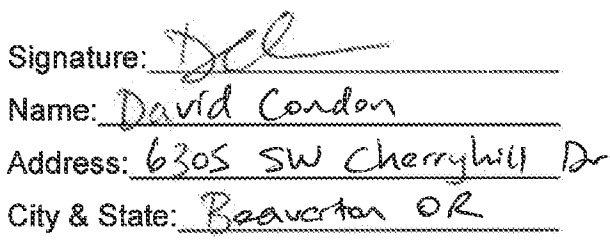 Signature:
Name: David Condon
Address: 6305 SW Cherryhill Dr
City & State: Beaverton OR